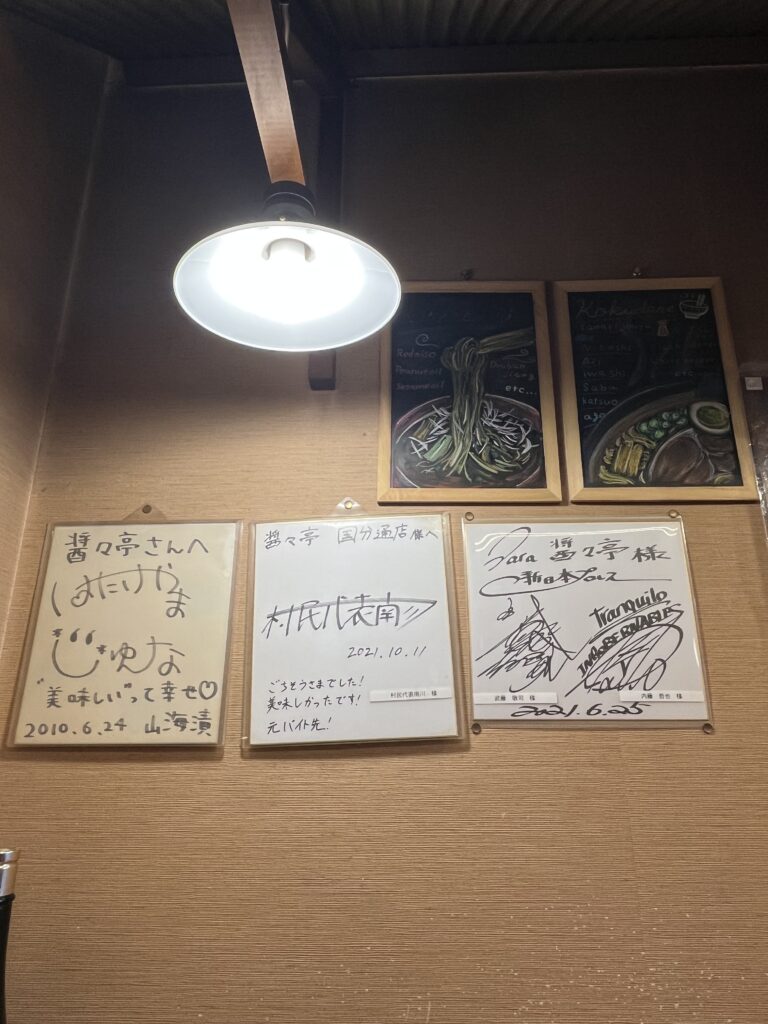 Redmiso
Peanutoil
Sesameoil
etc...
Kokudare
iwashi
Saba
katsuo
ago
etc
醤々亭さんへ
はたけやま
じゅんな
"美味しい"って幸せ♡
2010.6.24 山海漬
醤々亭 国分通店様へ
村民代表南川
2021.10.11
ごちそうさまでした!
美味しかったです!
元バイト先!
村民代表南川 様
Para 醤々亭様
新日本プロレス
Tranquilo
INGOBERNABLES
武藤 敬司 様
内藤 哲也 様
2021.6.25